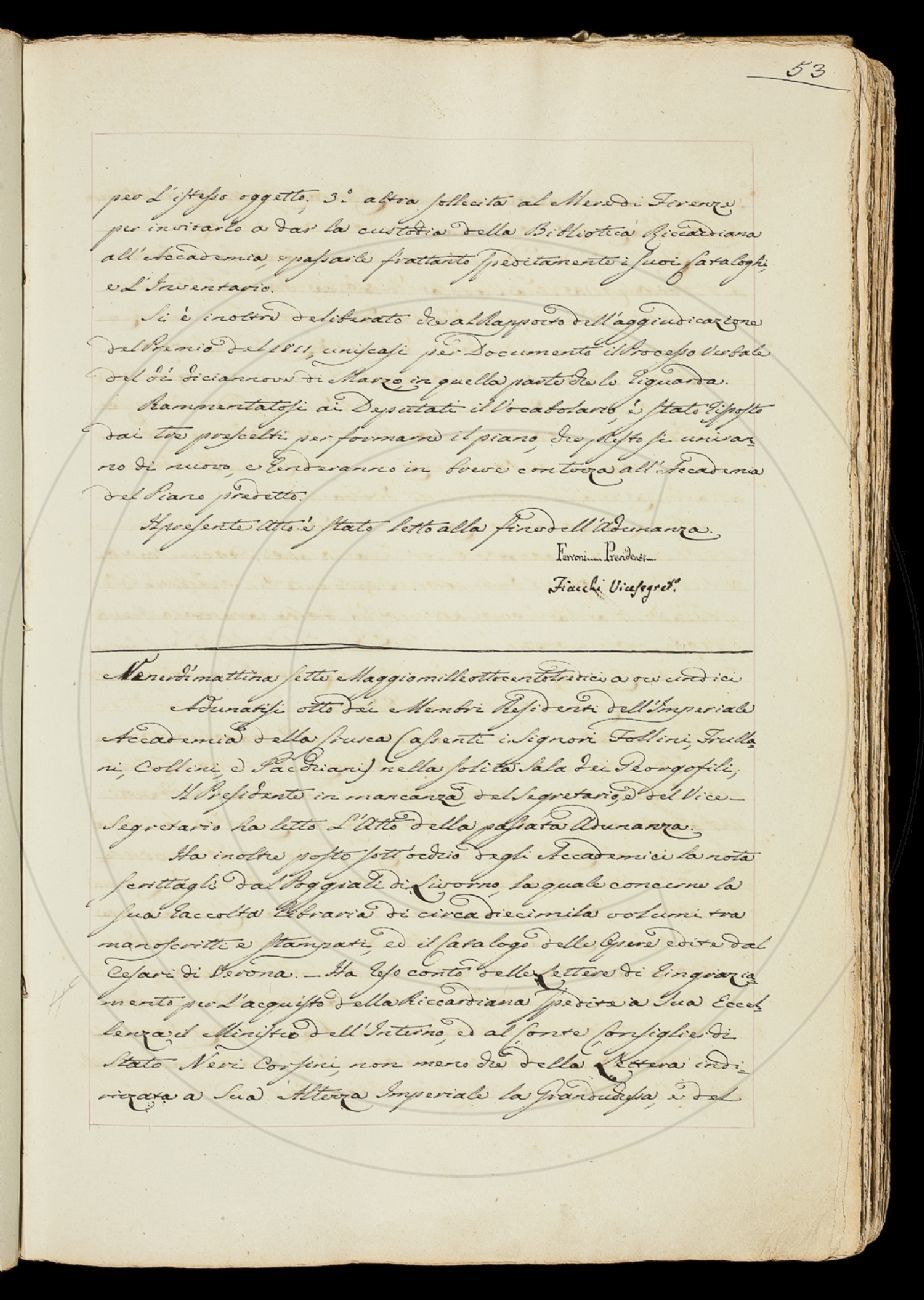 53
per L'istesso oggetto; 3.º altra sollecita al Mere di Firenze
per invitarlo a dar la custodia della Biblioteca Riccardiana
all'Accademia, e passarle frattanto speditamente i suoi Cataloghi,
e L'Inventario.
Si è inoltre deliberato che al Rapporto dell'aggiudicazione
del Premio del 1811, uniscasi per Documento il Processo Verbale
del dì diciannove di Marzo, in quella parte che lo riguarda.
Rammentatosi ai Deputati il Vocabolario, è stato risposto
dai tre prescelti per formarne il piano, che presto si uniran-
no di nuovo, e renderanno in breve contezza all'Accademia
del Piano predetto.
Il presente Atto è stato letto alla fine dell'Adunanza.
Ferroni Presidente
Fiacchi Vicesegret.º
Venerdì mattina sette Maggio milleottocentotredici a ore undici
Adunatisi otto dei Membri Residenti dell'Imperiale
Accademia della Crusca (assenti i Signori Follini, Frulla-
ni, Collini, e Pacchiani) nella solita Sala dei Georgofili;
Il Presidente in mancanza del Segretario, e del Vice-
Segretario ha letto L'Atto della passata Adunanza.
Ha inoltre posto sott'occhio degli Accademici la nota
scrittagli dal Poggiali di Livorno, la quale concerne la
sua raccolta libraria di circa diecimila volumi tra
manoscritti e stampati, ed il Catalogo delle Opere edite dal
Cesari di Verona. - Ha reso conto delle Lettere di ringrazia-
mento per L'acquisto della Riccardiana spedite a Sua Eccel-
lenza il Ministro dell'Interno, ed al Conte Consiglier di
Stato Neri Corsini, non meno che della Lettera indi-
rizzata a Sua Altezza Imperiale la Granduchessa, e del